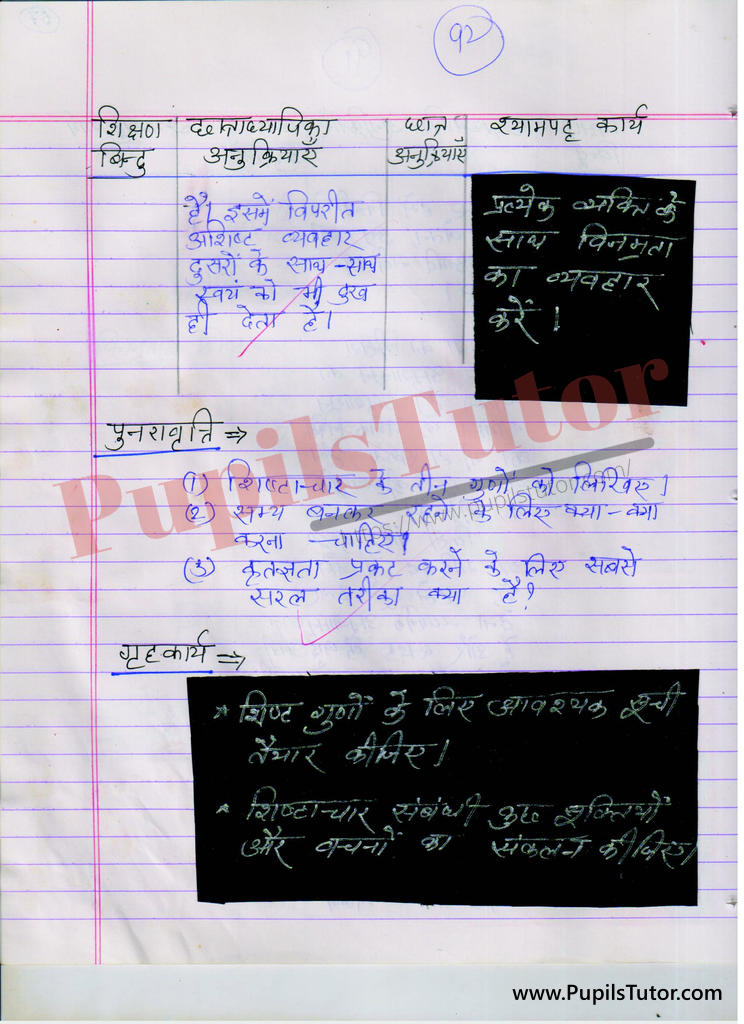 92
शिक्षण बिन्दु
छात्राध्यापिका अनुक्रियाएँ
छात्र अनुक्रियाएँ
श्यामपट्ट कार्य
है। इसमें विपरीत
अशिष्ट व्यवहार
दुसरों के साथ-साथ
स्वयं को भी दुख
ही देता है।
प्रत्येक व्यक्ति के
साथ विनम्रता
का व्यवहार
करें।
पुनरावृत्ति ⇒
(1) शिष्टाचार के तीन गुणों को लिखिए।
(2) सभ्य बनकर रहने के लिए क्या-क्या
करना चाहिए।
(3) कृतज्ञता प्रकट करने के लिए सबसे
सरल तरीका क्या है?
गृहकार्य ⇒
* शिष्ट गुणों के लिए आवश्यक सूची
तैयार कीजिए।
* शिष्टाचार संबंधी कुछ सूक्तियों
और वचनों का संकलन कीजिए।
PupilsTutor
https://www.pupilstutor.com/
www.PupilsTutor.com